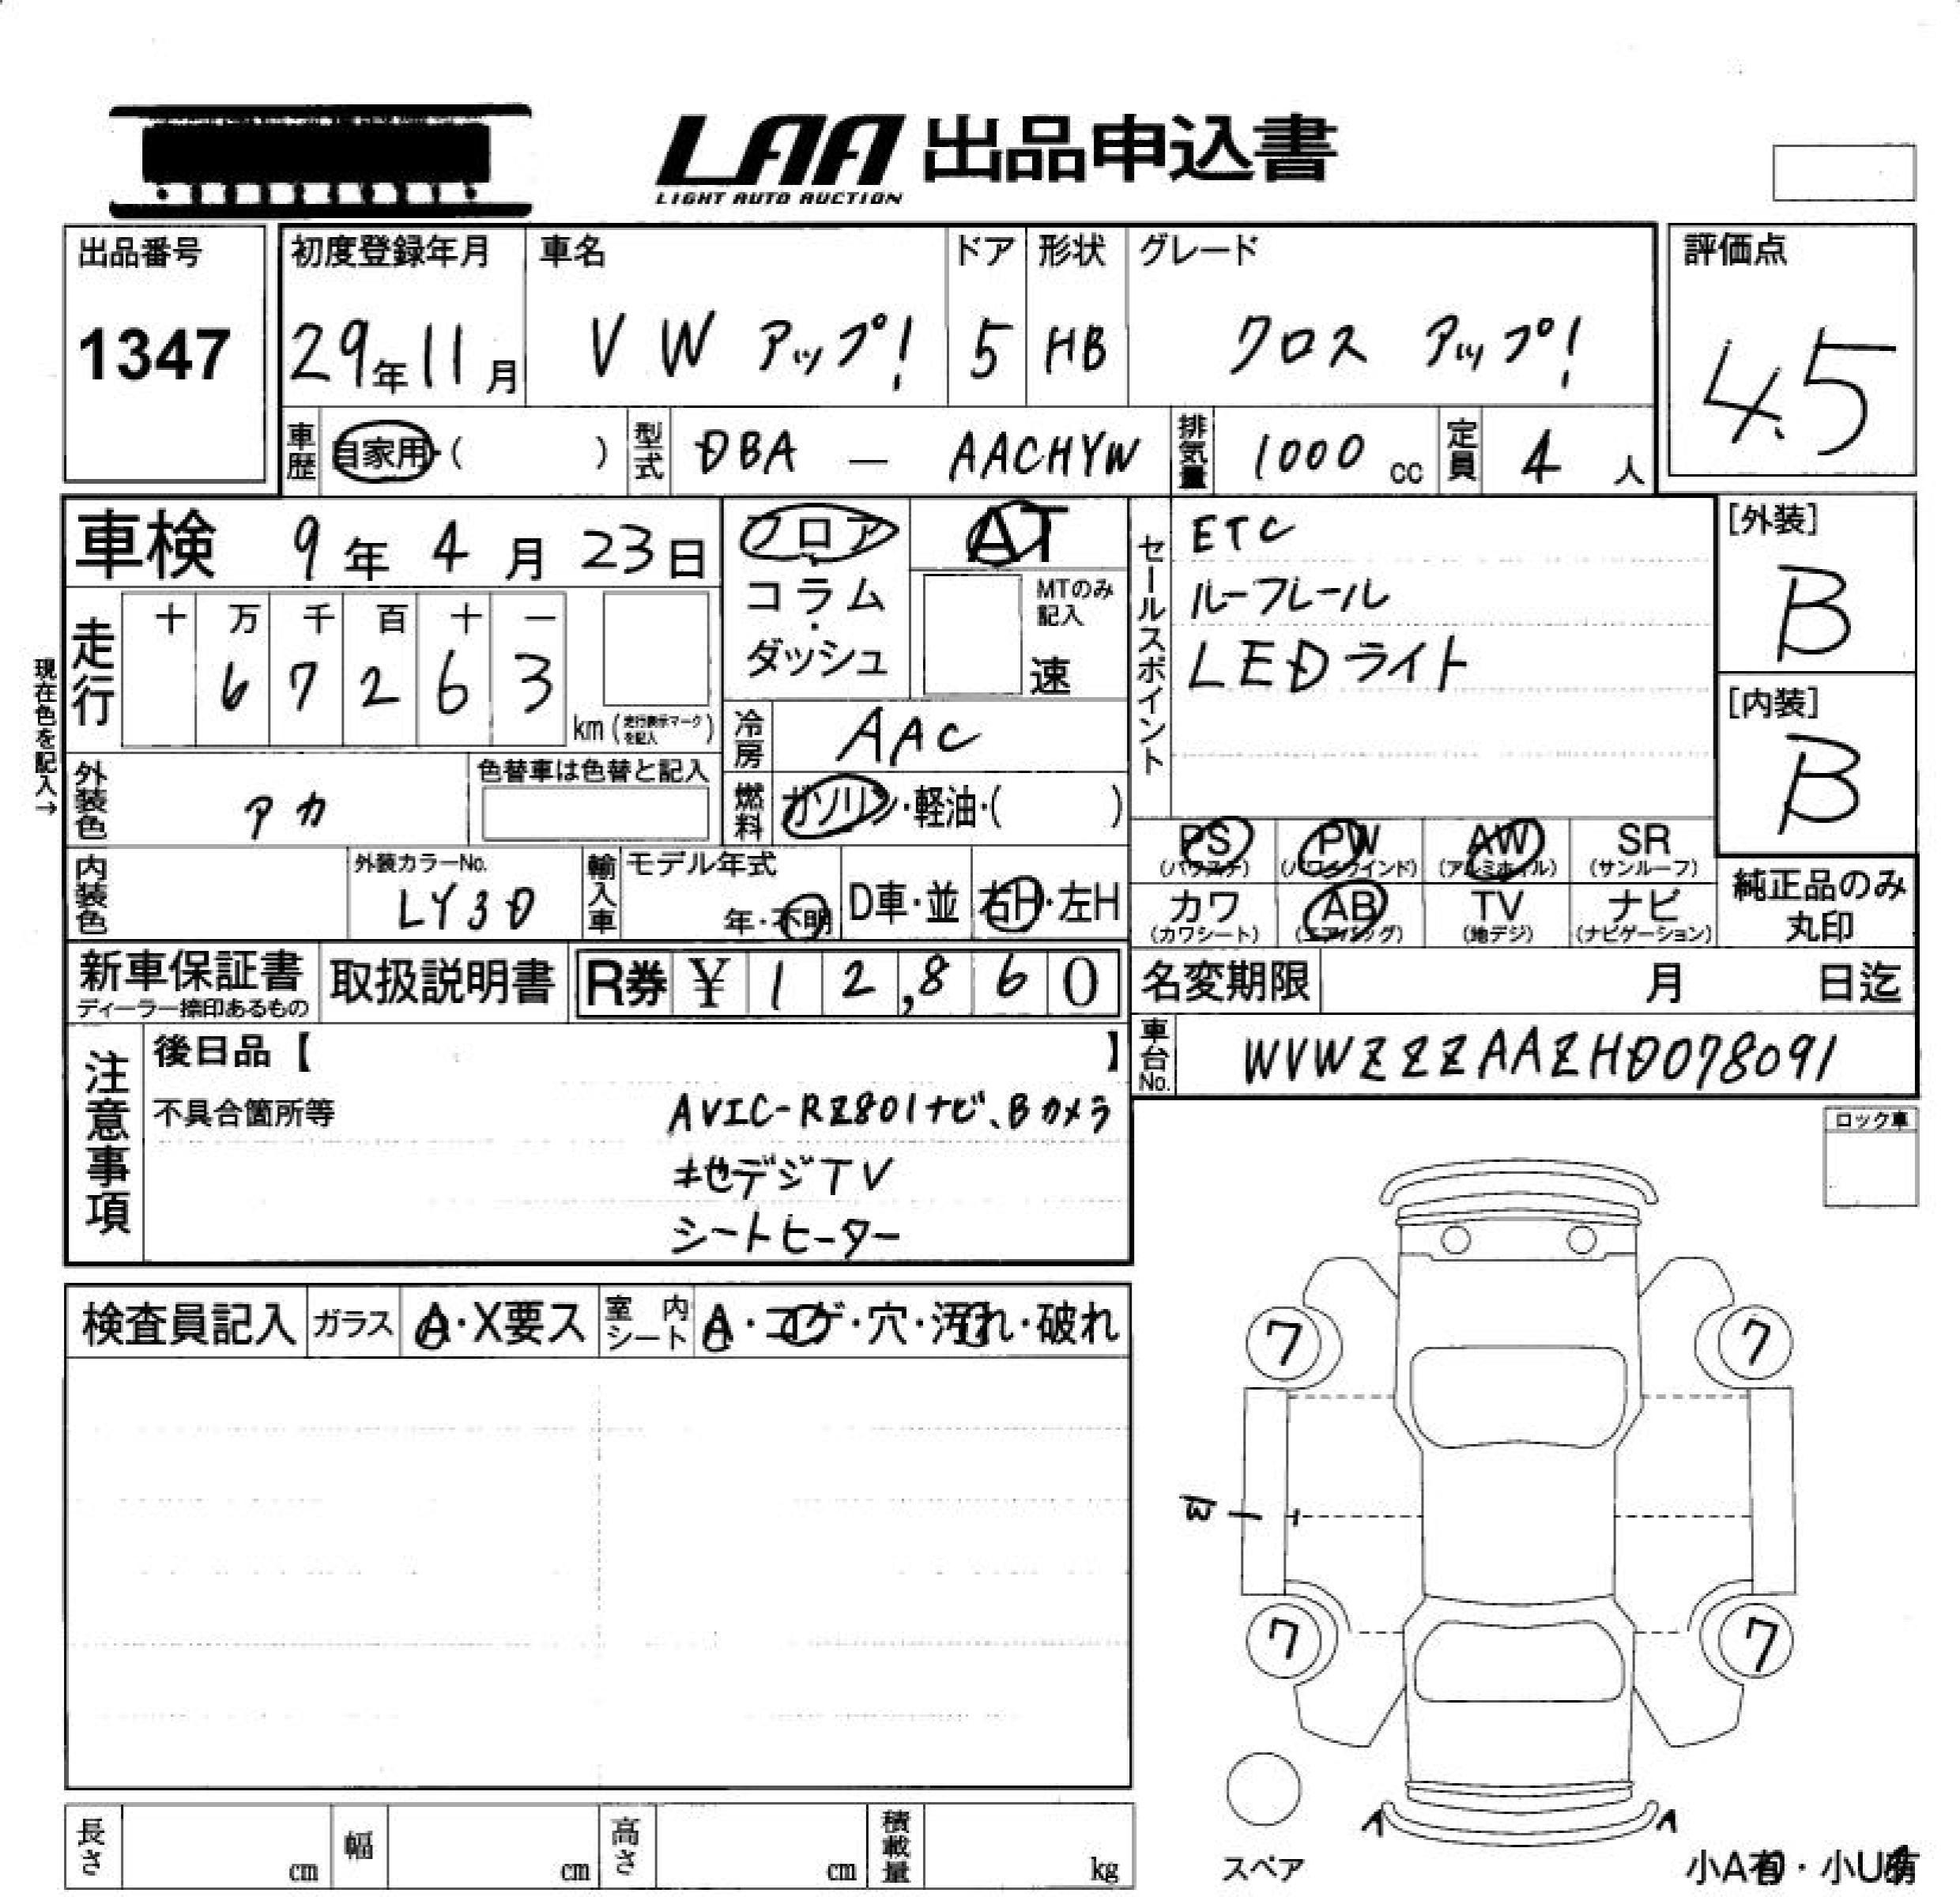 LAA 出品申込書
LIGHT AUTO AUCTION
出品番号 初度登録年月 車名 ドア 形状 グレード 評価点
1347 29年11月 VW アップ! 5 HB クロス アップ! 4.5
車歴 自家用・( ) 型式 DBA — AACHYW 排気量 1000 cc 定員 4 人
車検 9年 4月 23日
フロア・コラム・ダッシュ
AT
MTのみ記入
速
セールスポイント
ETC
ルーフレール
LEDライト
[外装]
B
[内装]
B
現在色を記入→
走行 十 万 千 百 十 一
6 7 2 6 3
km(走行表示マークを記入)
冷房 AAC
外装色 アカ 色替車は色替と記入
燃料 ガソリン・軽油・( )
PS PW AW SR
(パワステ) (パワーウインド) (アルミホイル) (サンルーフ)
内装色 外装カラーNo. LY3D 輸入車 モデル年式 年・不明 D車・並 右H・左H
カワ AB TV ナビ
(カワシート) (エアバッグ) (地デジ) (ナビゲーション)
純正品のみ
丸印
新車保証書 取扱説明書 R券 ¥ 12,860 名変期限 月 日迄
ディーラー捺印あるもの
車台No. WVWZZZAAZHD078091
注意事項
後日品【 】
不具合箇所等 AVIC-RZ801ナビ、Bカメラ
地デジTV
シートヒーター
ロック車
検査員記入 ガラス A・X要ス 室内シート A・コゲ・穴・汚れ・破れ
7 7
B
7 7
スペア
A A
長さ cm 幅 cm 高さ cm 積載量 kg
小A有・小U有